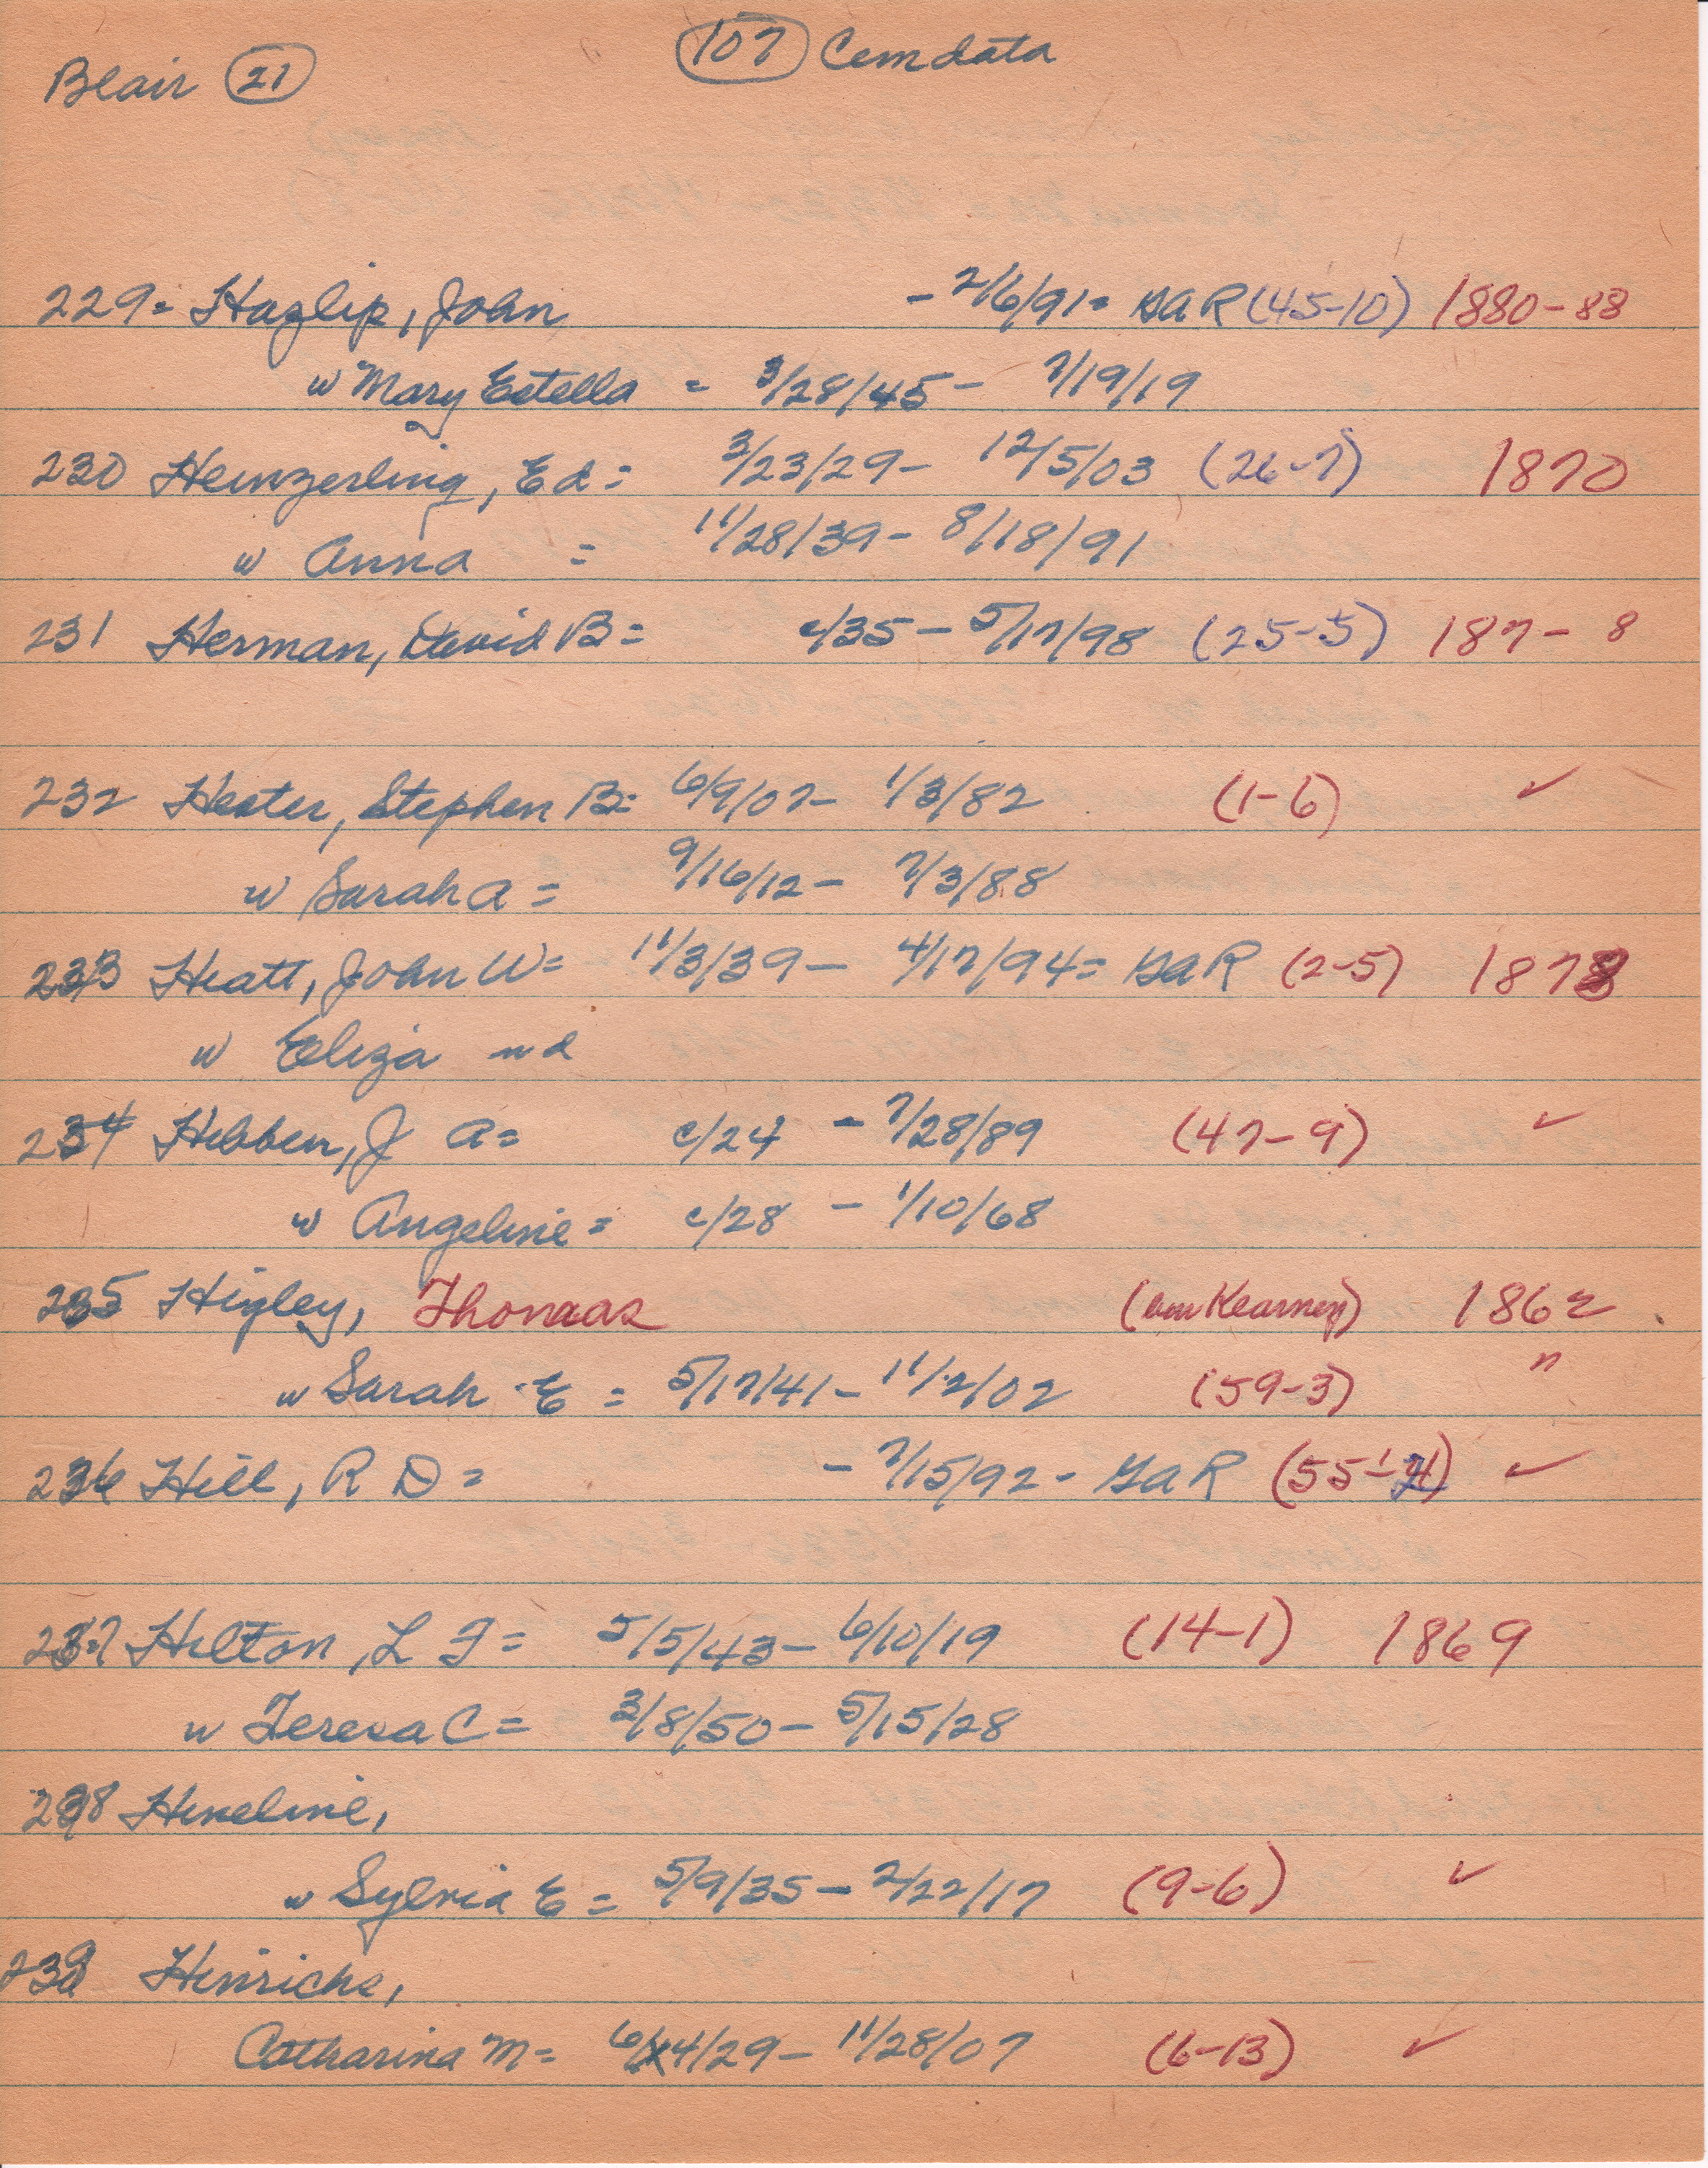 Blair (21) (107) Cemdata
229= Hazlip, John - 2/6/91= GAR (45-10) 1880-88
w Mary Estella = 3/28/45 - 7/19/19
230 Heinzerling, Ed= 3/23/29- 12/5/03 (26-7) 1870
w Anna = 11/28/39- 8/18/91
231 Herman, David B= c/35 - 5/17/98 (25-5) 187- 8
232 Hester, Stephen B= 6/9/07- 1/3/82 (1-6) ✓
w Sarah A = 9/16/12- 7/3/88
233 Hiatt, John W= 11/3/39- 4/17/94= GAR (2-5) 1878
w Eliza nd
234 Hibben, J A= c/24 - 7/28/89 (47-9) ✓
w Angeline= c/28 - 1/10/68
235 Higley, Thomas (bur Kearney) 1862
w Sarah E = 5/17/41- 11/2/02 (59-3) "
236 Hill, R D= - 7/15/92- GAR ✓
237 Hilton, L F= 5/5/43- 6/10/19 (14-1) 1869
w Teresa C= 3/8/50- 5/15/28
238 Hineline,
w Sylvia E = 5/9/35- 2/22/17 (9-6) ✓
239 Hinrichs,
Catharina M= 6/4/29- 11/28/07 (6-13) ✓